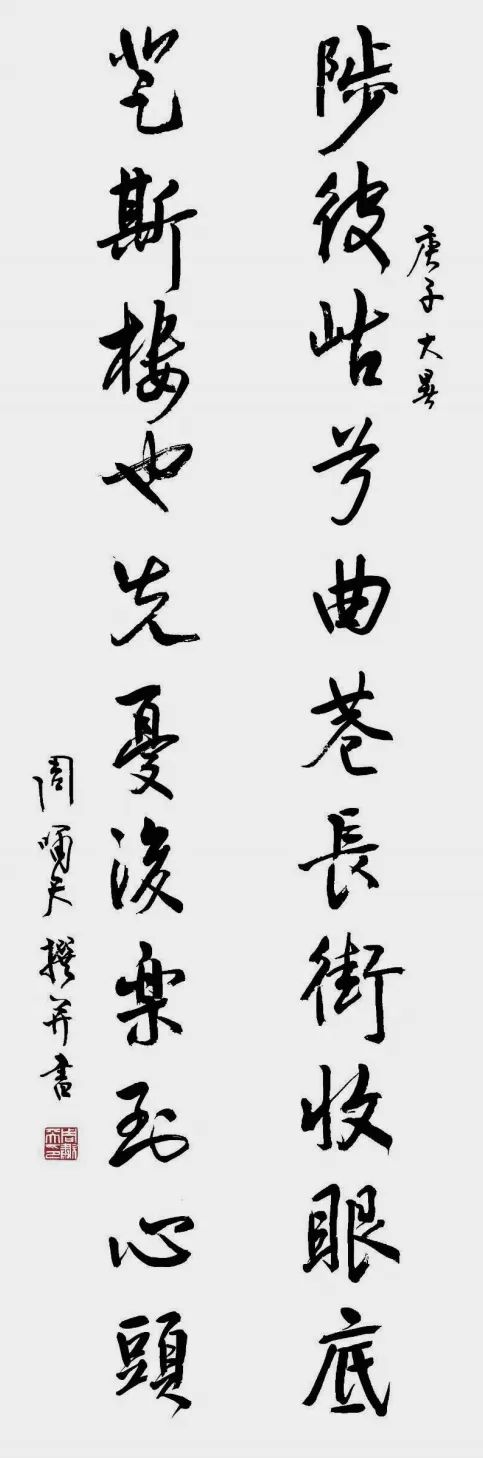 庚子大暑
陟彼岵兮曲巷長街收眼底
登斯樓也先憂後樂到心頭
周嘯天撰并書